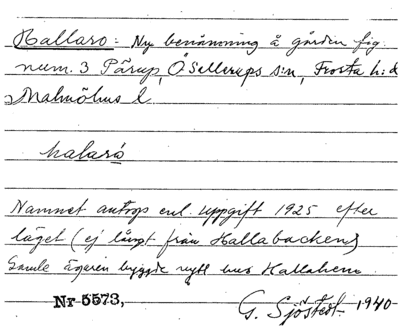 Hallaro: Ny benämning å gården fig.
num. 3 Pärup, Ö Sallerups s:n, Frosta h:d
Malmöhus l.
halaró
Namnet antogs enl. uppgift 1925 efter
läget (ej långt från Hallabacken)
Samle ägaren byggde nytt hus Hallahem
Nr 5573, G. Sjöstedt 1940